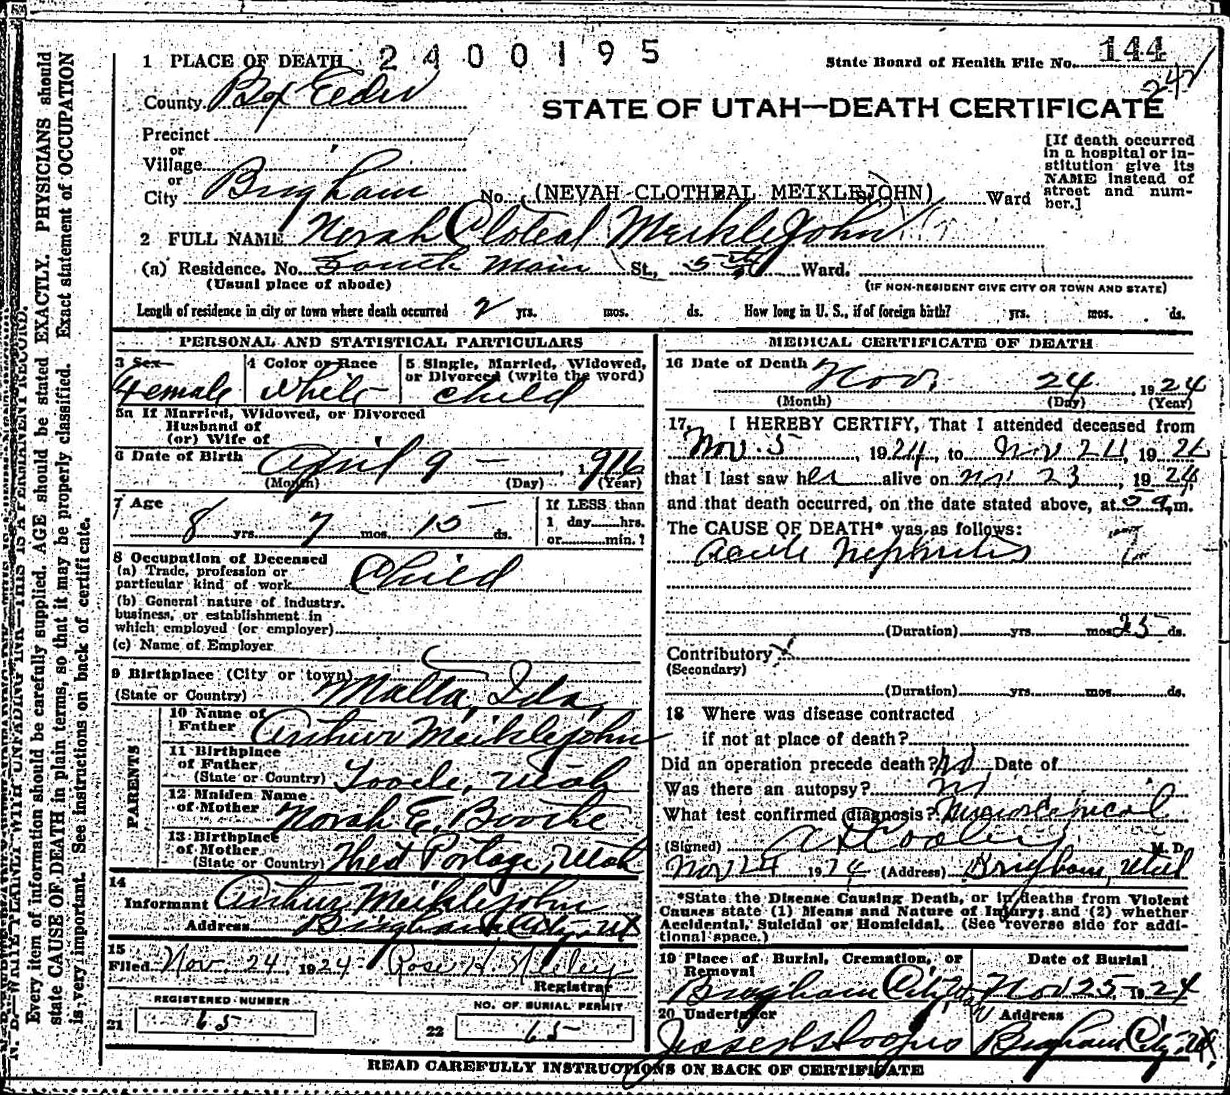 1 PLACE OF DEATH 2400195
State Board of Health File No. 144
242
County. Box Elder
STATE OF UTAH—DEATH CERTIFICATE
Precinct
or
Village
or
City Brigham No. (NEVAH CLOTHEAL MEIKLEJOHN) St. Ward
[If death occurred
in a hospital or in-
stitution give its
NAME instead of
street and num-
ber.]
2 FULL NAME Norah Cloteal MeikleJohn
(a) Residence. No. South Main St., 5th Ward.
(Usual place of abode)
(IF NON-RESIDENT GIVE CITY OR TOWN AND STATE)
Length of residence in city or town where death occurred 2 yrs. mos. ds. How long in U. S., if of foreign birth? yrs. mos. ds.
PERSONAL AND STATISTICAL PARTICULARS
3 Sex Female
4 Color or Race White
5 Single, Married, Widowed,
or Divorced (write the word) child
5a If Married, Widowed, or Divorced
Husband of
(or) Wife of
6 Date of Birth April 9 — , 1916
(Month) (Day) (Year)
7 Age 8 yrs. 7 mos. 15 ds.
If LESS than
1 day hrs.
or min.?
8 Occupation of Deceased
(a) Trade, profession or
particular kind of work Child
(b) General nature of industry.
business, or establishment in
which employed (or employer)
(c) Name of Employer
9 Birthplace (City or town)
(State or Country) Malta, Ida,
PARENTS
10 Name of
Father Arthur Meiklejohn
11 Birthplace
of Father
(State or Country) Tooele, Utah
12 Maiden Name
of Mother Norah E. Boothe
13 Birthplace
of Mother
(State or Country) West Portage, Utah
14
Informant Arthur Meiklejohn
Address Brigham City, Ut
15
Filed Nov. 24, 1924 Rose H.
Registrar
REGISTERED NUMBER
21 65
NO. OF BURIAL PERMIT
22 65
MEDICAL CERTIFICATE OF DEATH
16 Date of Death Nov. 24, 1924
(Month) (Day) (Year)
17. I HEREBY CERTIFY, That I attended deceased from
Nov. 5, 1924, to Nov 24, 1924
that I last saw her alive on Nov 23, 1924,
and that death occurred, on the date stated above, at 5 a.m.
The CAUSE OF DEATH* was as follows:
Acute Nephritis
(Duration) yrs. mos. 25 ds.
Contributory
(Secondary)
(Duration) yrs. mos. ds.
18 Where was disease contracted
if not at place of death?
Did an operation precede death? No Date of
Was there an autopsy? No
What test confirmed diagnosis?
(Signed) Cooley M. D.
Nov 24 1924 (Address) Brigham, Utah
*State the Disease Causing Death, or in deaths from Violent
Causes state (1) Means and Nature of Injury; and (2) whether
Accidental, Suicidal or Homicidal. (See reverse side for addi-
tional space.)
19 Place of Burial, Cremation, or
Removal Brigham City,
Date of Burial
Nov 25 — 1924
20 Undertaker
Address Brigham City, Ut,
READ CAREFULLY INSTRUCTIONS ON BACK OF CERTIFICATE
N. B.—WRITE PLAINLY WITH UNFADING INK—THIS IS A PERMANENT RECORD.
Every item of information should be carefully supplied. AGE should be stated EXACTLY. PHYSICIANS should
state CAUSE OF DEATH in plain terms, so that it may be properly classified. Exact statement of OCCUPATION
is very important. See instructions on back of certificate.